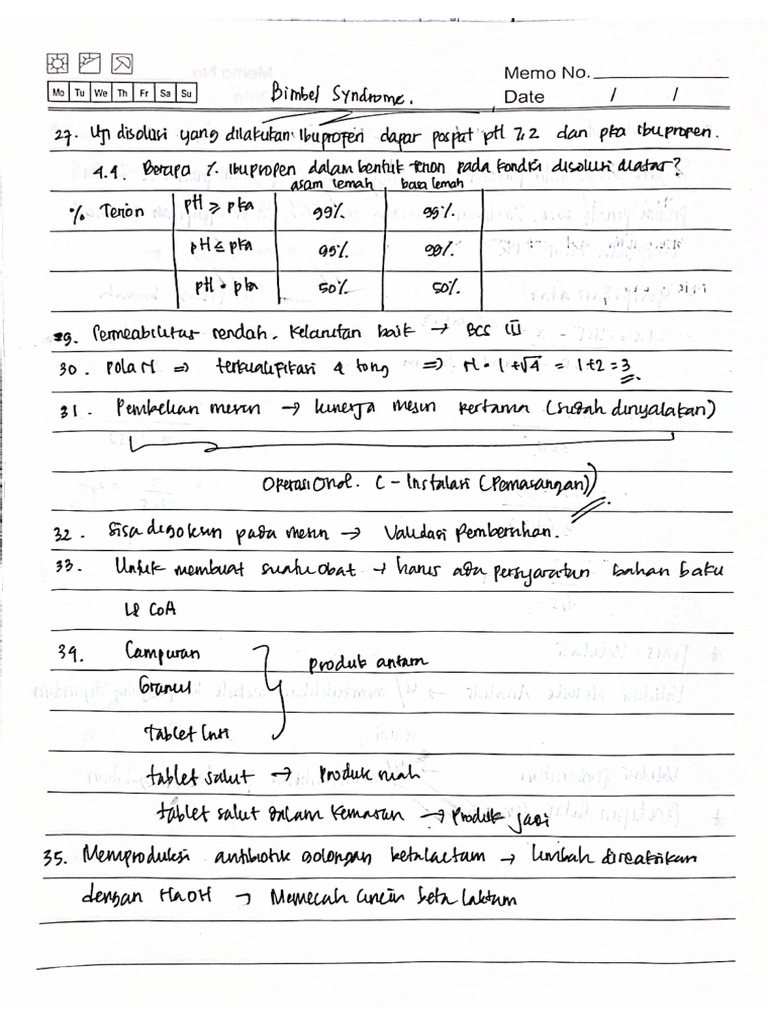 Memo No.
Mo Tu We Th Fr Sa Su
Bimbel Syndrome.
Date / /
27. Uji disolusi yang dilakukan ibuprofen dapar pospat pH 7,2 dan pka ibuprofen.
4.4. Berapa % ibuprofen dalam bentuk terion pada kondisi disolusi diatas?
asam lemah basa lemah
% Terion pH ≥ pka 99% %
pH ≤ pka % 99%
pH = pka 50% 50%
29. Permeabilitas rendah, kelarutan baik → BCS III
30. pola n ⇒ terkualifikasi 4 tong ⇒ n = 1 + √4 = 1 + 2 = 3
31. Pembelian mesin → kinerja mesin pertama (sudah dinyalakan)
Operasional. ( - Instalasi (Pemasangan))
32. Sisa pada mesin → Validasi Pembersihan.
33. Untuk membuat suatu obat → harus ada persyaratan bahan baku
CoA
34. Campuran
Granul
produk antara
tablet inti
tablet salut → produk ruah
tablet salut dalam kemasan → produk jadi
35. Memproduksi antibiotik golongan betalactam → limbah direaksikan
dengan NaOH → Memecah cincin beta laktam